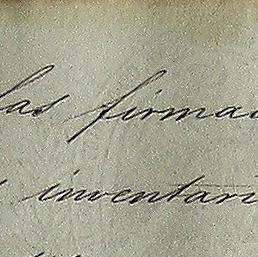 las firmad
inventari